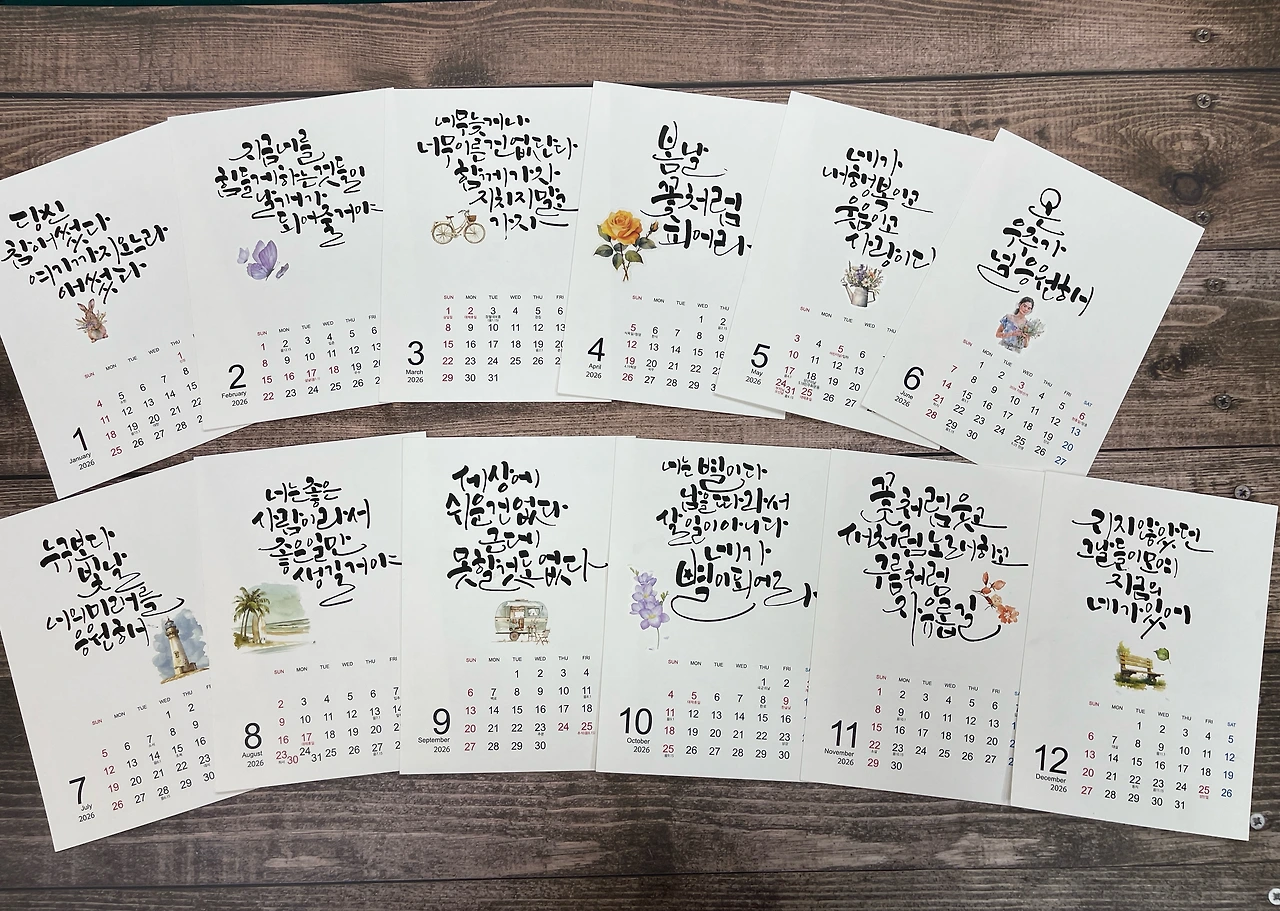 당신
참 애썼다
여기까지 오느라
애썼다
SUN MON TUE
1
5 6 7 8
4 11 12 13 14 15
18 19 20 21 22
25 26 27 28
1
January
2026
지금 너를
힘들게 하는 것들이
날개가
되어줄거야
SUN MON TUE WED THU FRI
1 2 3 4 5 6
8 9 10 11 12 13
15 16 17 18 19 20
22 23 24 25 26
2
February
2026
너무 늦거나
너무 이른 건 없단다
함께 가자
지치지 말고
가자
SUN MON TUE WED THU FRI
1 2 3 4 5 6
8 9 10 11 12 13
15 16 17 18 19 20
22 23 24 25 26
29 30 31
3
March
2026
봄날
꽃처럼
피어라
SUN MON TUE WED THU
1 2
5 6 7 8 9
12 13 14 15 16
19 20 21 22 23
26 27 28 29
4
April
2026
네가
내 행복이고
웃음이고
사랑이다
SUN MON TUE WED
3 4 5 6
10 11 12 13
17 18 19 20
24 31 25 26 27
5
May
2026
온
우주가
널 응원해
SUN MON TUE WED THU FRI SAT
1 2 3 4 5 6
7 8 9 10 11 12 13
14 15 16 17 18 19 20
21 22 23 24 25 26 27
28 29 30
6
June
2026
누구보다
빛날
너의 미래를
응원해
SUN MON TUE WED THU
1 2
5 6 7 8 9
12 13 14 15 16
19 20 21 22 23
26 27 28 29 30
7
July
2026
너는 좋은
사람이라서
좋은 일만
생길거야
SUN MON TUE WED THU FRI
2 3 4 5 6 7
9 10 11 12 13 14
16 17 18 19 20 21
23 30 24 31 25 26 27
8
August
2026
세상에
쉬운 건 없다
근데
못할 것도 없다
SUN MON TUE WED THU FRI
1 2 3 4
6 7 8 9 10 11
13 14 15 16 17 18
20 21 22 23 24 25
27 28 29 30
9
September
2026
너는 별이다
남을 따라서
살 일이 아니다
네가
별이 되어라
SUN MON TUE WED THU FRI
1 2
4 5 6 7 8 9
11 12 13 14 15 16
18 19 20 21 22 23
25 26 27 28 29 30
10
October
2026
꽃처럼 웃고
새처럼 노래하고
구름처럼
자유롭길
SUN MON TUE WED THU FRI
1 2 3 4 5 6
8 9 10 11 12 13
15 16 17 18 19 20
22 23 24 25 26 27
29 30
11
November
2026
지지 않았던
그날들이 모여
지금의
네가 있어
SUN MON TUE WED THU FRI SAT
1 2 3 4 5
6 7 8 9 10 11 12
13 14 15 16 17 18 19
20 21 22 23 24 25 26
27 28 29 30 31
12
December
2026